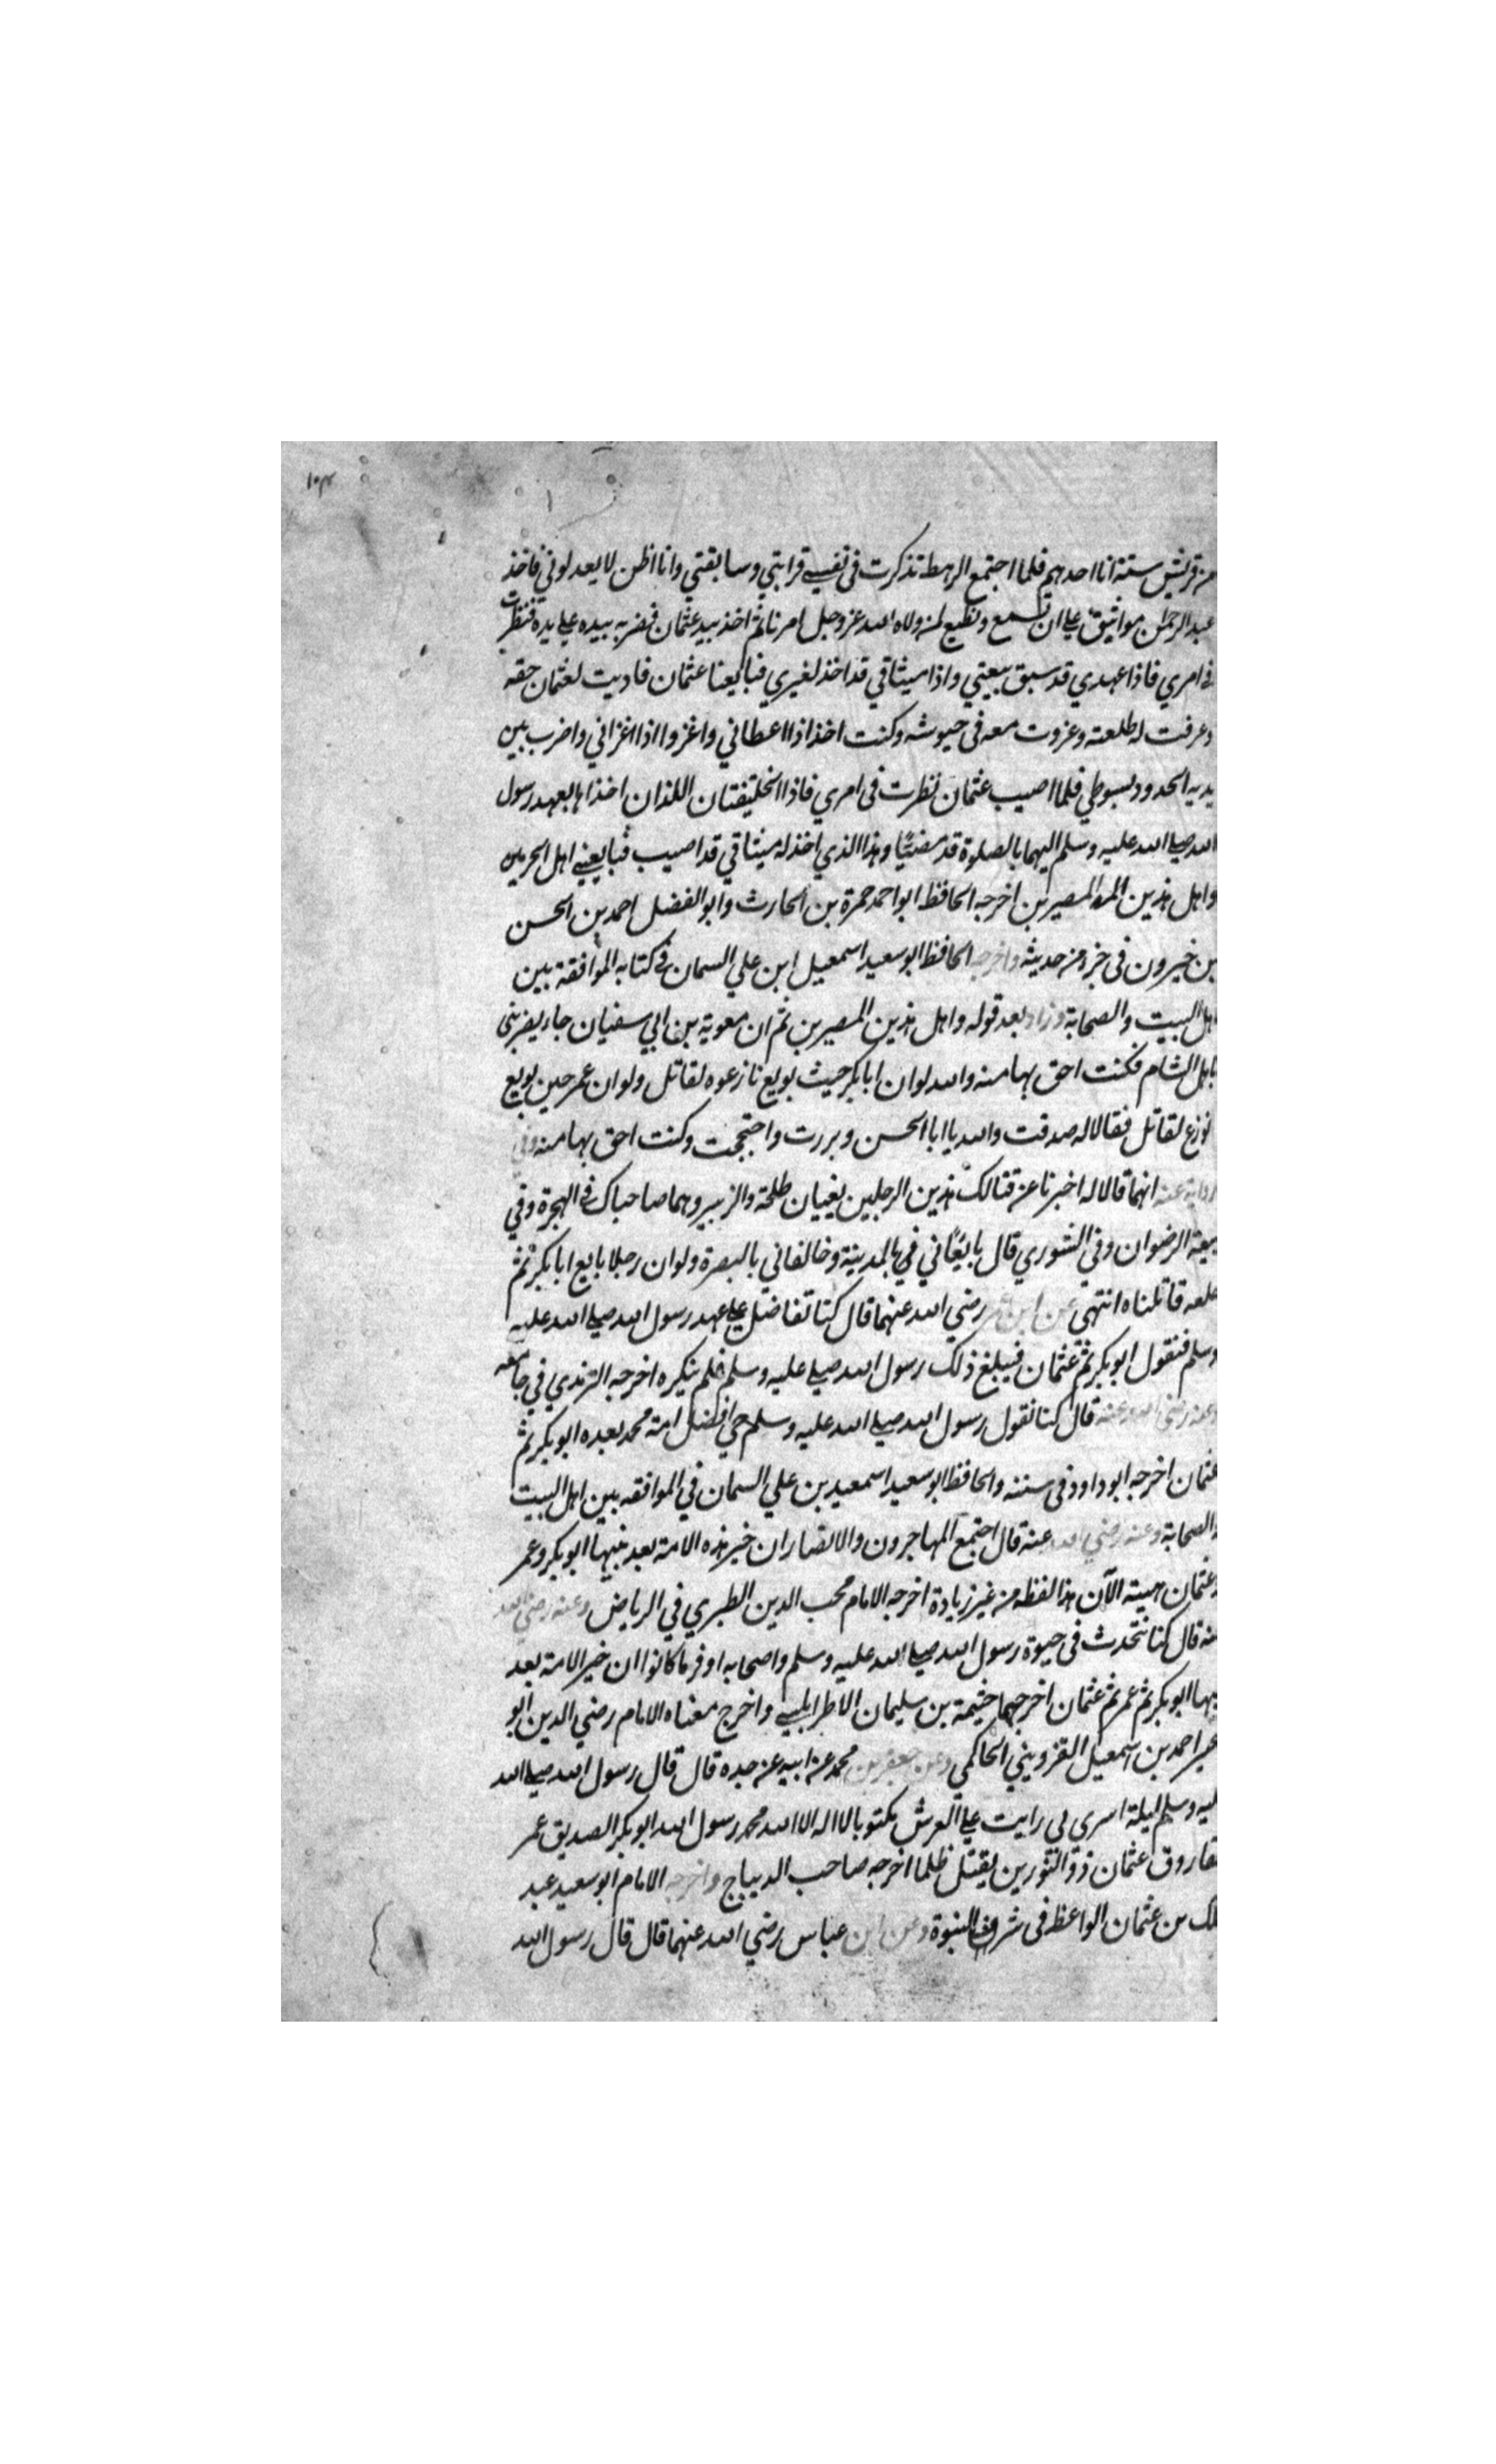 ١٠٣
من قريش ستة انا احدهم فلما اجتمع الرهط تذكرت في نفسي قرابتي وسابقتي وانا اظن لا يعدلوني فاخذ
عبد الرحمن مواثيق علي ان نسمع ونطيع لمن ولاه الله عز وجل امرنا ثم اخذ بيد عثمان فضرب بيده علي يده فنظرت
في امري فاذا عهدي قد سبق بيعتي واذا ميثاقي قد اخذ لغيري فبايعنا عثمان فاديت لعثمان حقه
وعرفت له طلعته وغزوت معه في جيوشه وكنت اخذ اذا اعطاني واغزوا اذا اغزاني واضرب بين
يديه الحدود بسوطي فلما اصيب عثمان نظرت في امري فاذا الخليفتان اللذان اخذاها بعهد رسول
الله صلي الله عليه وسلم اليهما بالصلوة قد مضيا وهذا الذي اخذ له ميثاقي قد اصيب فبايعني اهل الحرمين
واهل هذين المصرين اخرجه الحافظ ابو احمد حمزة بن الحارث وابو الفضل احمد بن الحسن
بن خيرون في جزء من حديثه واخرجه الحافظ ابو سعيد اسمعيل ابن علي السمان في كتابه الموافقة بين
اهل البيت والصحابة وزاد بعد قوله واهل هذين المصرين ثم ان معوية بن ابي سفيان جاء يضربني
باهل الشام فكنت احق بها منه والله لو ان ابا بكر حيث بويع نازعوه لقاتل ولو ان عمر حين بويع
نوزع لقاتل فقالا له صدقت والله يا ابا الحسن وبررت واحتججت وكنت احق بها منه وفي
رواية عنه انهما قالا له اخبرنا عن قتالك هذين الرجلين يعنيان طلحة والزبير وهما صاحباك في الهجرة وفي
بيعة الرضوان وفي الشوري قال بايعاني في بالمدينة وخالفاني بالبصرة ولو ان رجلا بايع ابا بكر ثم
خلعه قاتلناه انتهي عن ابن عمر رضي الله عنهما قال كنا تفاضل علي عهد رسول الله صلي الله عليه
وسلم فنقول ابو بكر ثم عثمان فيبلغ ذلك رسول الله صلي عليه وسلم فلم ينكره اخرجه الترمذي في جامعه
وعنه رضي الله عنه قال كنا نقول رسول الله صلي الله عليه وسلم حي افضل امة محمد بعده ابو بكر ثم
عثمان اخرجه ابو داود في سننه والحافظ ابو سعيد اسمعيد بن علي السمان في الموافقه بين اهل البيت
والصحابة وعنه رضي الله عنه قال اجتمع المهاجرون والانصار ان خير هذه الامة بعد نبيها ابو بكر وعمر
وعثمان هيته الآن هذا لفظه من غير زيادة اخرجه الامام محب الدين الطبري في الرياض وعنه رضي الله
عنه قال كنا نتحدث في حيوة رسول الله صلي الله عليه وسلم واصحابه اوفر ما كانوا ان خير الامة بعد
نبيها ابو بكر ثم عمر ثم عثمان اخرجهما خيثمة بن سليمان الاطرابلسي واخرج معناه الامام رضي الدين ابو
الخير احمد بن اسمعيل القزويني الحاكمي وعن جعفر بن محمد عن ابيه عن جده قال قال رسول الله صلي الله
عليه وسلم ليلة اسري بي رايت علي العرش مكتوبا لا اله الا الله محمد رسول الله ابو بكر الصديق عمر
الفاروق عثمان ذو النورين يقتل ظلما اخرجه صاحب الديباج واخرجه الامام ابو سعيد عبد
الملك بن عثمان الواعظ في شرف النبوة وعن ابن عباس رضي الله عنهما قال قال رسول الله